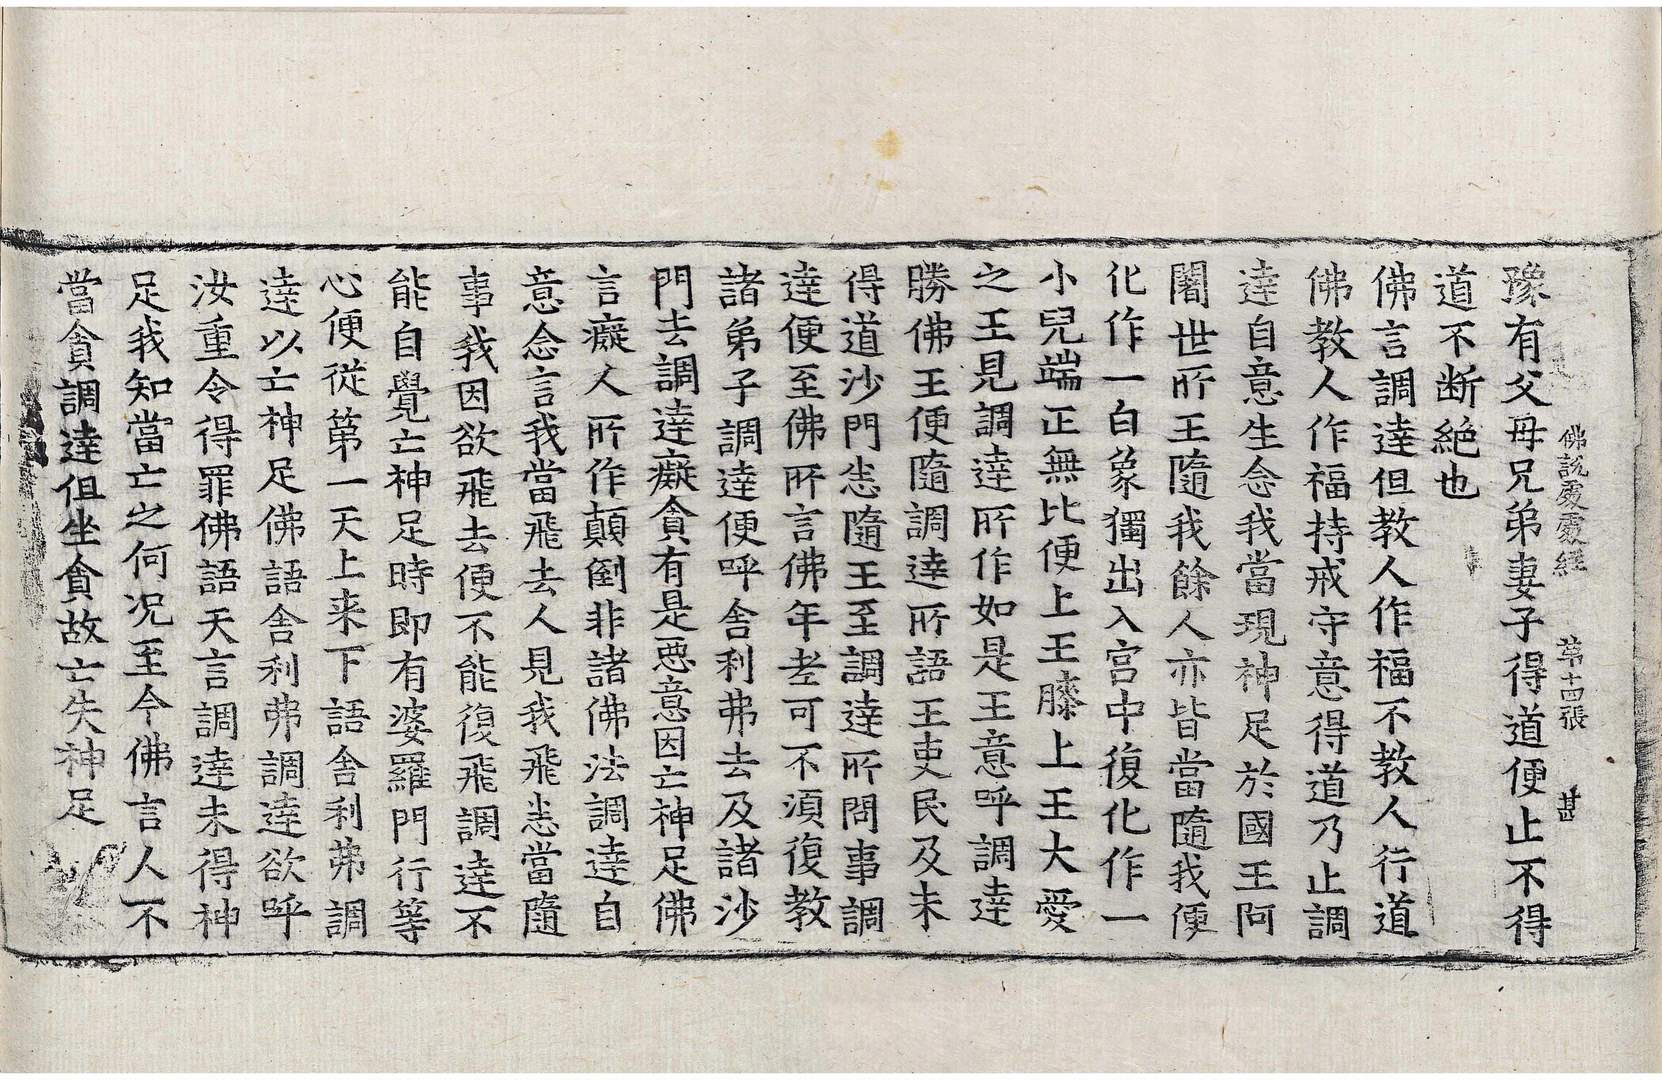 佛說處處經 第十四張 甚
豫有父母兄弟妻子得道便止不得
道不断絶也
佛言調達但教人作福不教人行道
佛教人作福持戒守意得道乃止調
達自意生念我當現神足於國王阿
闍世所王隨我餘人亦皆當隨我便
化作一白象獨出入宮中復化作一
小兒端正無比便上王膝上王大愛
之王見調達所作如是王意呼調達
勝佛王便隨調達所語王吏民及未
得道沙門悉隨王至調達所問事調
達便至佛所言佛年老可不湏復教
諸弟子調達便呼舍利弗去及諸沙
門去調達癡貪有是惡意因亡神足佛
言癡人所作顛倒非諸佛法調達自
意念言我當飛去人見我飛悉當隨
事我因欲飛去便不能復飛調達不
能自覺亡神足時即有婆羅門行等
心便從第一天上来下語舍利弗調
達以亡神足佛語舍利弗調達欲呼
汝重令得罪佛語天言調達未得神
足我知當亡之何况至今佛言人不
當貪調達但坐貪故亡失神足